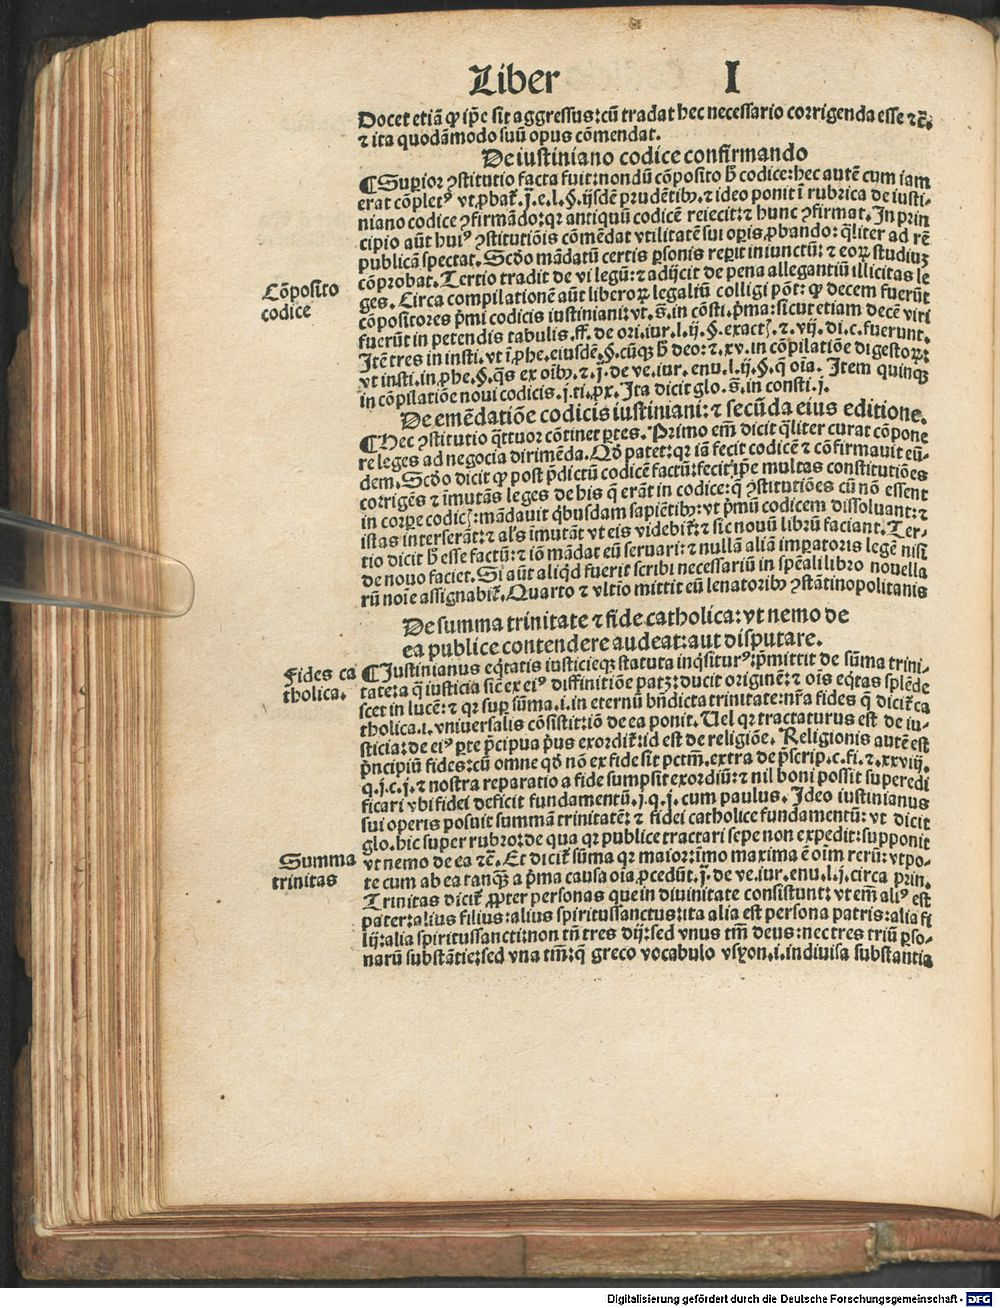 Liber I
Docet etiã ꝙ ip̃e sit aggressus: cũ tradat hec necessario corrigenda esse ⁊c̃.
⁊ ita quodãmodo suũ opus cõmendat.
De iustiniano codice confirmando
¶ Superior ꝯstitutio facta fuit: nondũ cõposito h̃ codice: hec autẽ cum iam
erat cõpletꝰ vt ꝓbat᷑. j̃. e. l. §. ijsdẽ prudẽtibꝫ. ⁊ ideo ponit ĩ rubrica de iusti-
niano codice ꝯfirmãdo: qꝛ antiquũ codicẽ reiecit: ⁊ hunc ꝯfirmat. In prin
cipio aũt huiꝰ ꝯstitutiõis cõmẽdat vtilitatẽ sui oꝑis ꝓbando: q̃liter ad rẽ
publicã spectat. Scd̃o mãdatũ certis ꝑsonis reꝑit iniunctũ: ⁊ eoꝝ studiuꝫ
cõprobat. Tertio tradit de vi legũ: ⁊ adijcit de pena allegantiũ illicitas le
ges. Circa compilationẽ aũt libeꝛoꝝ legaliũ colligi põt: ꝙ decem fuerũt
Cõposito
codice
cõpositores p̃mi codicis iustiniani: vt. s̃. in cõsti. p̃ma: sicut etiam decẽ viri
fuerũt in petendis tabulis. ff. de ori. iur. l. ij. §. exactꝭ. ⁊. vij. di. c. fuerunt.
Itẽ tres in insti. vt ĩ ꝓhe. eiusdẽ. §. cũqꝫ h̃ deo: ⁊. xv. in cõpilatiõe digestoꝝ:
vt insti. in ꝓhe. §. q̃s ex oĩbꝫ. ⁊. j̃. de ve. iur. enu. l. ij. §. q̃ oĩa. Item quinqꝫ
in cõpilatiõe noui codicis. j. ti. ꝓx. Ita dicit glo. s̃. in consti. j.
De emẽdatiõe codicis iustiniani: ⁊ secũda eius editione.
¶ Hec ꝯstitutio q̃ttuor cõtinet ꝑtes. Primo em̃ dicit q̃liter curat cõpone
re leges ad negocia dirimẽda. Qd̃ patet: qꝛ iã fecit codicẽ ⁊ cõfirmauit eũ-
dem. Scd̃o dicit ꝙ post p̃dictũ codicẽ factũ: fecit ip̃e multas constitutiões
corrigẽs ⁊ ĩmutãs leges de his q̃ erãt in codice: q̃ ꝯstitutiões cũ nõ essent
in corꝑe codicꝭ: mãdauit q̃busdam sapiẽtibꝫ: vt p̃mũ codicem dissoluant: ⁊
istas interserãt: ⁊ al's ĩmutãt vt eis videbit᷑: ⁊ sic nouũ librũ faciant. Ter-
tio dicit h̃ esse factũ: ⁊ iõ mãdat eũ seruari: ⁊ nullã aliã imꝑatoris legẽ nisi
de nouo faciet. Si aũt aliq̃d fuerit scribi necessariũ in sp̃eali libro nouella
rũ noĩe assignabit᷑. Quarto ⁊ vltĩo mittit eũ senatoribꝫ ꝯstãtinopolitanis
De summa trinitate ⁊ fide catholica: vt nemo de
ea publice contendere audeat: aut disputare.
Fides ca
tholica.
¶ Iustinianus eq̃tatis iusticieqꝫ statuta inq̃siturꝰ: p̃mittit de sũma trini-
tate: a q̃ iusticia siẽ ex eiꝰ diffinitiõe patꝫ: ducit originẽ: ⁊ oĩs eq̃tas splẽde
scet in lucẽ: ⁊ qꝛ suꝑ sũma. i. in eternũ bñdicta trinitate: nr̃a fides q̃ dicit᷑ ca
tholica. i. vniuersalis cõsistit: iõ de ea ponit. Uel qꝛ tractaturus est de iu-
sticia: de eiꝰ ꝑte p̃cipua p̃us exordit᷑: id est de religiõe. Religionis autẽ est
p̃ncipiũ fides: cũ omne qd̃ nõ ex fide sit pctm̃. extra de p̃scrip. c. fi. ⁊. xxviij.
q. j. c. j. ⁊ nostra reparatio a fide sumpsit exordiũ: ⁊ nil boni possit superedi
ficari vbi fidei deficit fundamentũ. j. q. j. cum paulus. Ideo iustinianus
sui operis posuit summã trinitatẽ: ⁊ fidei catholice fundamentũ: vt dicit
glo. hic super rubro: de qua qꝛ publice tractari sepe non expedit: supponit
Summa
trinitas
vt nemo de ea ⁊c̃. Et dicit᷑ sũma qꝛ maior: ĩmo maxima ẽ oĩm rerũ: vtpo-
te cum ab ea tanqꝫ a p̃ma causa oĩa ꝓcedũt. j̃. de ve. iur. enu. l. j. circa prin.
Trinitas dicit᷑ ꝓpter personas que in diuinitate consistunt: vt em̃ aliꝰ est
pater: alius filius: alius spiritussanctus: ita alia est persona patris: alia fi
lij: alia spiritussancti: non tñ tres dij: sed vnus tm̃ deus: nec tres triũ ꝑso-
narũ substãtie: sed vna tm̃: q̃ greco vocabulo vsyon. i. indiuisa substantia
Digitalisierung gefördert durch die Deutsche Forschungsgemeinschaft - DFG